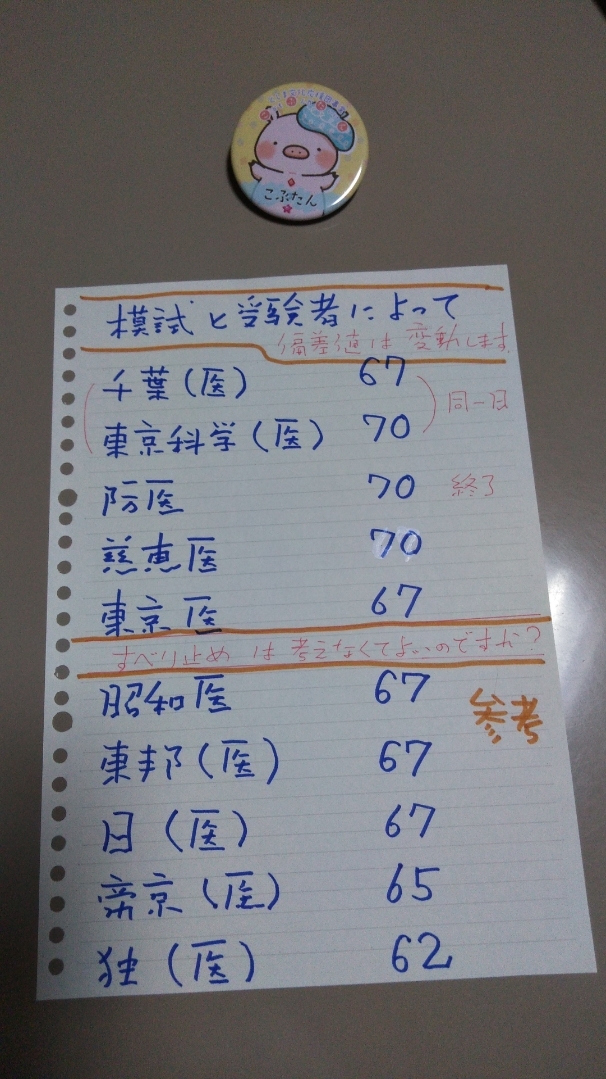 こぶたん
模試と受験者によって
偏差値は変動します。
千葉(医) 67
東京科学(医) 70
同一日
防医 70 終了
慈恵医 70
東京医 67
すべり止めは考えなくてよいのですか?
昭和医 67
参考
東邦(医) 67
日(医) 67
帝京(医) 65
独(医) 62